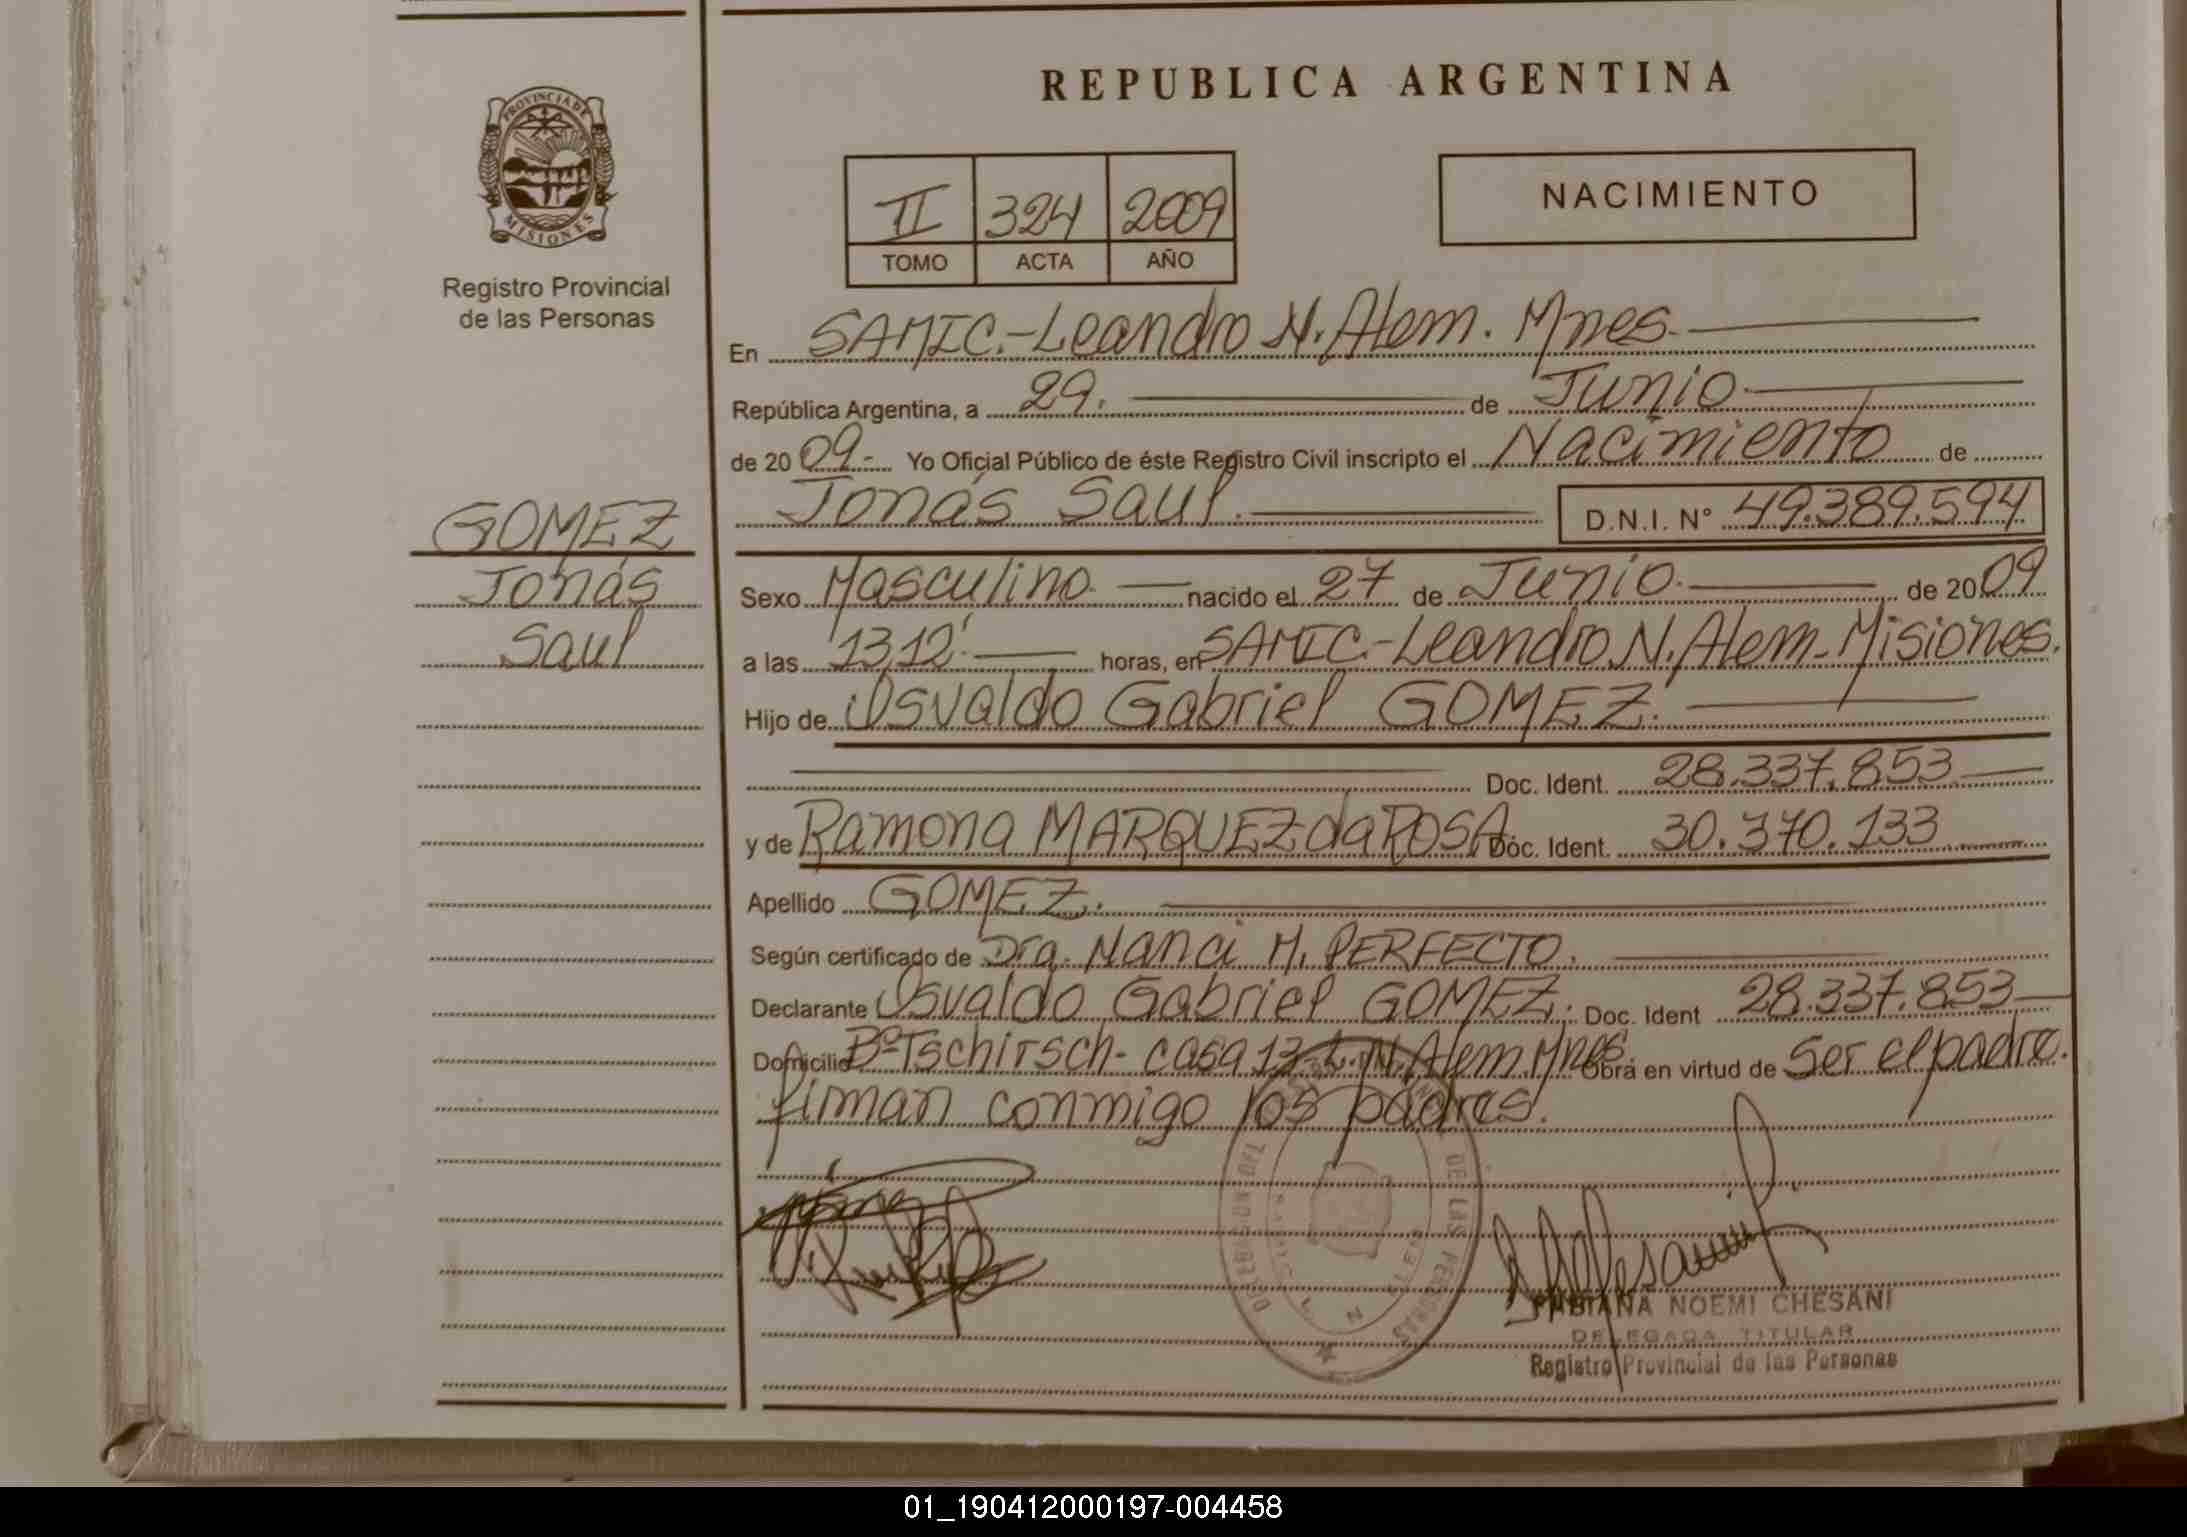 REPUBLICA ARGENTINA
PROVINCIA DE MISIONES
Registro Provincial
de las Personas
II 324 2009
TOMO ACTA AÑO
NACIMIENTO
En SAMIC.-Leandro N. Alem. Mnes.
República Argentina, a 29. de Junio
de 20 09.- Yo Oficial Público de éste Registro Civil inscripto el Nacimiento de
Jonás Saul. D.N.I. N° 49.389.594
GOMEZ
Jonás
Saul
Sexo Masculino nacido el 27 de Junio. de 20 09
a las 13,12' horas, en SAMIC.-Leandro N. Alem-Misiones.
Hijo de Osvaldo Gabriel GOMEZ.
Doc. Ident. 28.337.853
y de Ramona MARQUEZ da ROSA Doc. Ident. 30.370.133
Apellido GOMEZ.
Según certificado de Dra. Nanci M. PERFECTO.
Declarante Osvaldo Gabriel GOMEZ. Doc. Ident 28.337.853
Domicilio B° Tschirsch- casa 13-L.N. Alem. Mnes. Obra en virtud de Ser el padre.
firman conmigo los padres.
DELEGACION DEL DE LAS PERSONAS
FABIANA NOEMI CHESANI
DELEGADA TITULAR
Registro Provincial de las Personas
01_190412000197-004458